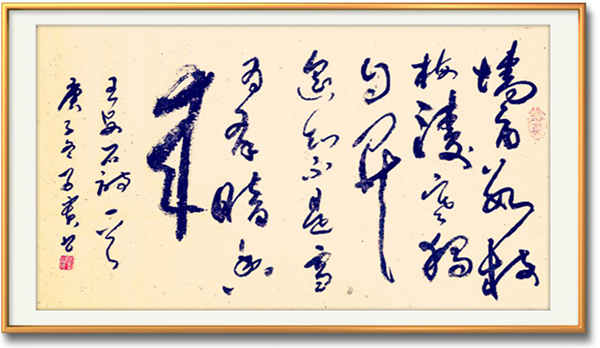 墙角数枝
梅凌寒独
自开
遥知不是雪
为有暗香
来
王安石诗一首
庚子冬